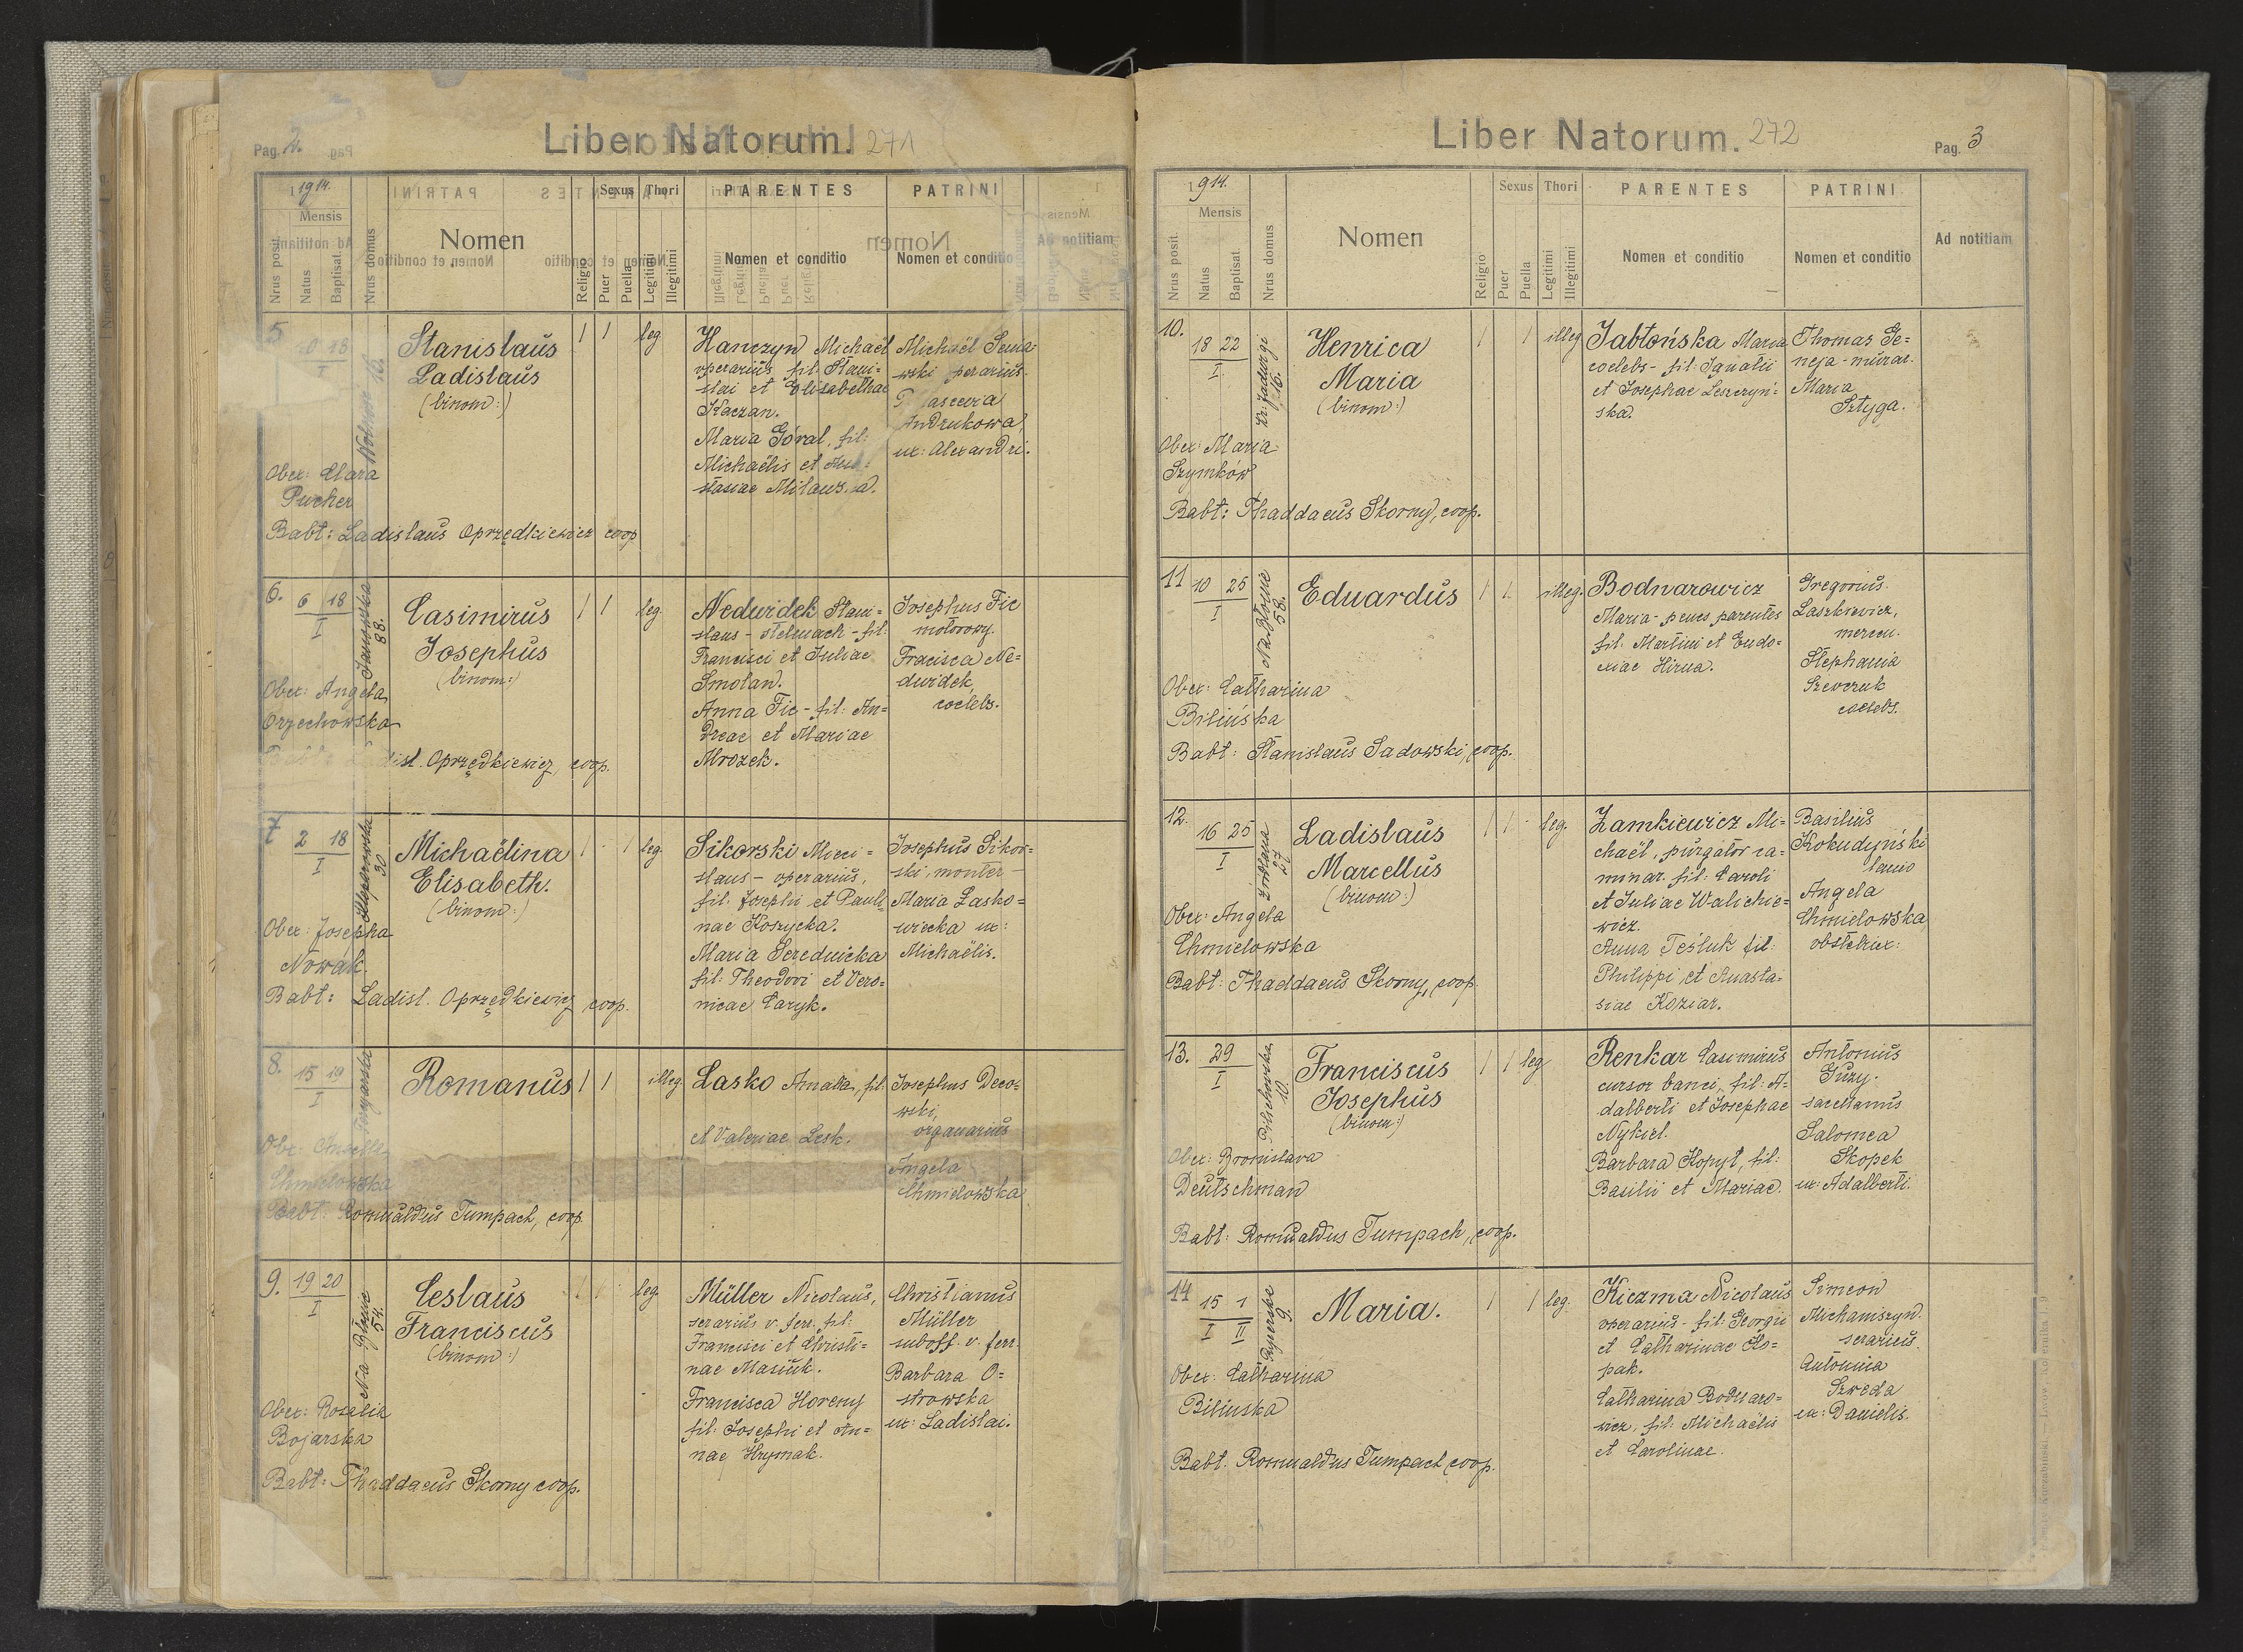 Pag. 2.
Liber Natorum. 271
1914.
Mensis
Nrus posit.
Natus
Baptisat.
Nrus domus
Nomen
Religio
Sexus
Puer
Puella
Thori
Legitimi
Illegitimi
PARENTES
Nomen et conditio
PATRINI
Nomen et conditio
Ad notitiam
5
18
I
16.
Stanislaus
Ladislaus
(binom:)
1 1 leg
Hanczyn Michaël
operarius fil: Stani=
slai et Elisabethae
Kaczan.
Maria Góral, fil:
Michaëlis et
stasiae
Michaël
wski
Andrukowa,
ux: Alexandri.
Obex: Clara
Pucher
Babt: Ladislaus Oprzędkiewicz coop
6.
6 18
I
Janowska
88.
Casimirus
Josephus
(binom:)
1 1 leg.
Nedwidek Stani=
slaus - stelmach - fil:
Francisci et Juliae
Smolan.
Anna Fic - fil: An=
dreae et Mariae
Mrozek.
Josephus Fic
motorowy.
Fracisca Ne=
dwidek,
coelebs.
Obex: Angela
Orzechowska
Oprzędkiewicz, coop.
7
2 18
I
30
Michaëlina
Elisabeth.
(binom:)
1 1 leg.
Sikorski Mieci=
slaus - operarius,
fil: Josephi et Pauli=
nae Koszycka.
Maria Serednicka
fil: Theodori et Vero=
nicae Caryk.
Josephus Sikor=
ski, monter -
Maria Lasko=
wiecka ux:
Michaëlis.
Obex: Josepha
Nowak.
Babt: Ladisl. Oprzędkiewicz coop.
8.
15 19
I
Romanus
1 1 illeg.
Lasko Amalia, fil:
et Valeriae Lesk.
Josephus Deco=
wski,
organarius
Angela
Chmielowska
Chmielowska
Babt: Romualdus Tumpach, coop.
9.
19 20
I
Na Błonie
54.
Ceslaus
Franciscus
(binom:)
leg.
Müller Nicolaus,
serarius v. ferr. fil:
Francisci et Christi=
nae Masiuk.
Francisca Horeny
fil: Josephi et An=
nae Hrymak.
Christianus
Müller
suboff. v. ferr.
Barbara O=
strowska
ux: Ladislai.
Obex: Rosalia
Bojarska
Babt: Thaddaeus Skorny coop.
Liber Natorum. 272
Pag. 3
1914.
Mensis
Nrus posit.
Natus
Baptisat.
Nrus domus
Nomen
Religio
Sexus
Puer
Puella
Thori
Legitimi
Illegitimi
PARENTES
Nomen et conditio
PATRINI
Nomen et conditio
Ad notitiam
10.
18 22
I
Kr: Jadwigi
16.
Henrica
Maria
(binom:)
1 1 illeg
Jabłońska Maria
coelebs - fil: Ignatii
et Josephae Leszczyń=
ska.
Thomas Ge=
neja - murar.
Maria
Sztyga.
Obex: Maria
Szymków
Babt: Thaddaeus Skorny, coop.
11
10 25
I
Na Błonie
58.
Eduardus
1 1 illeg.
Bodnarowicz
Maria - penes parentes
fil: Martini et Eudo=
xiae Hirna.
Gregorius
Laszkiewicz,
mercen.
Stephania
Szewczuk
coelebs.
Obex: Catharina
Bilińska
Babt: Stanislaus Sadowski, coop.
12.
16 25
I
27
Ladislaus
Marcellus
(binom:)
1 1 leg.
Zamkiewicz Mi=
chaël, purgator ca=
minar. fil: Caroli
et Juliae Walichie=
wicz.
Anna Teśluk fil:
Philippi et Anasta=
siae Koziar.
Basilius
Kokudyński
lanio
Angela
Chmielowska
obstetrix:
Obex: Angela
Chmielowska
Babt: Thaddaeus Skorny, coop.
13.
29
I
Pilichowska
10.
Franciscus
Josephus
(binom:)
1 1 leg
Renkar Casimirus
cursor banci, fil: A=
dalberti et Josephae
Nykiel.
Barbara Kopyt, fil:
Basilii et Mariae.
Antonius
Guzy.
sacellanus
Salomea
Skopek
ux: Adalberti.
Obex: Bronislava
Deutschman
Babt: Romualdus Tumpach, coop.
14
15 1
I II
9.
Maria.
1 1 leg.
Kiczma Nicolaus
operarius - fil: Georgii
et Catharinae Ko=
pak.
Catharina Bodnaro=
wicz, fil: Michaëlis
et Carolinae.
Simeon
Michaniszyn.
serarius.
Antonina
Szweda
ux: Danielis.
Obex: Catharina
Bilinska
Babt. Romualdus Tumpach coop.